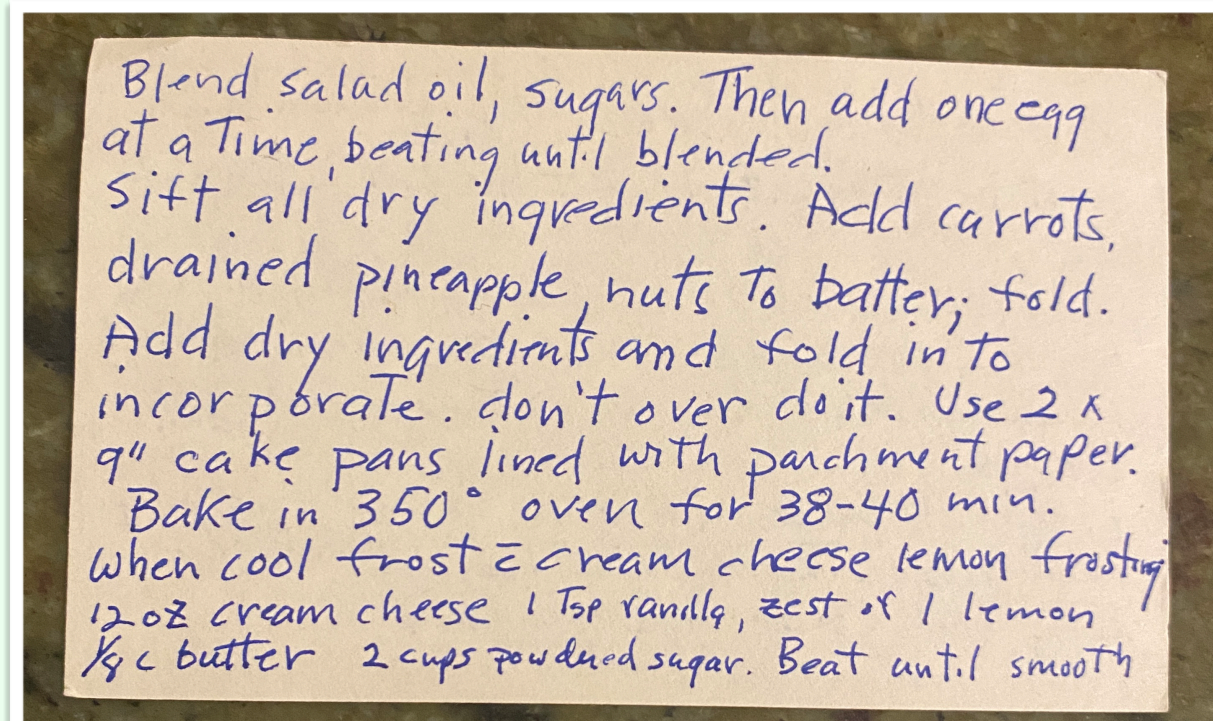 Blend salad oil, sugars. Then add one egg
at a Time, beating until blended.
Sift all dry ingredients. Add carrots,
drained pineapple, nuts To batter; fold.
Add dry ingredients and fold in To
incorporate. don't over do it. Use 2 x
9" cake pans lined with parchment paper.
Bake in 350° oven for 38-40 min.
When cool frost c̄ cream cheese lemon frosting
12 oz cream cheese 1 Tsp vanilla, zest of 1 lemon
1/8 c butter 2 cups powdered sugar. Beat until smooth